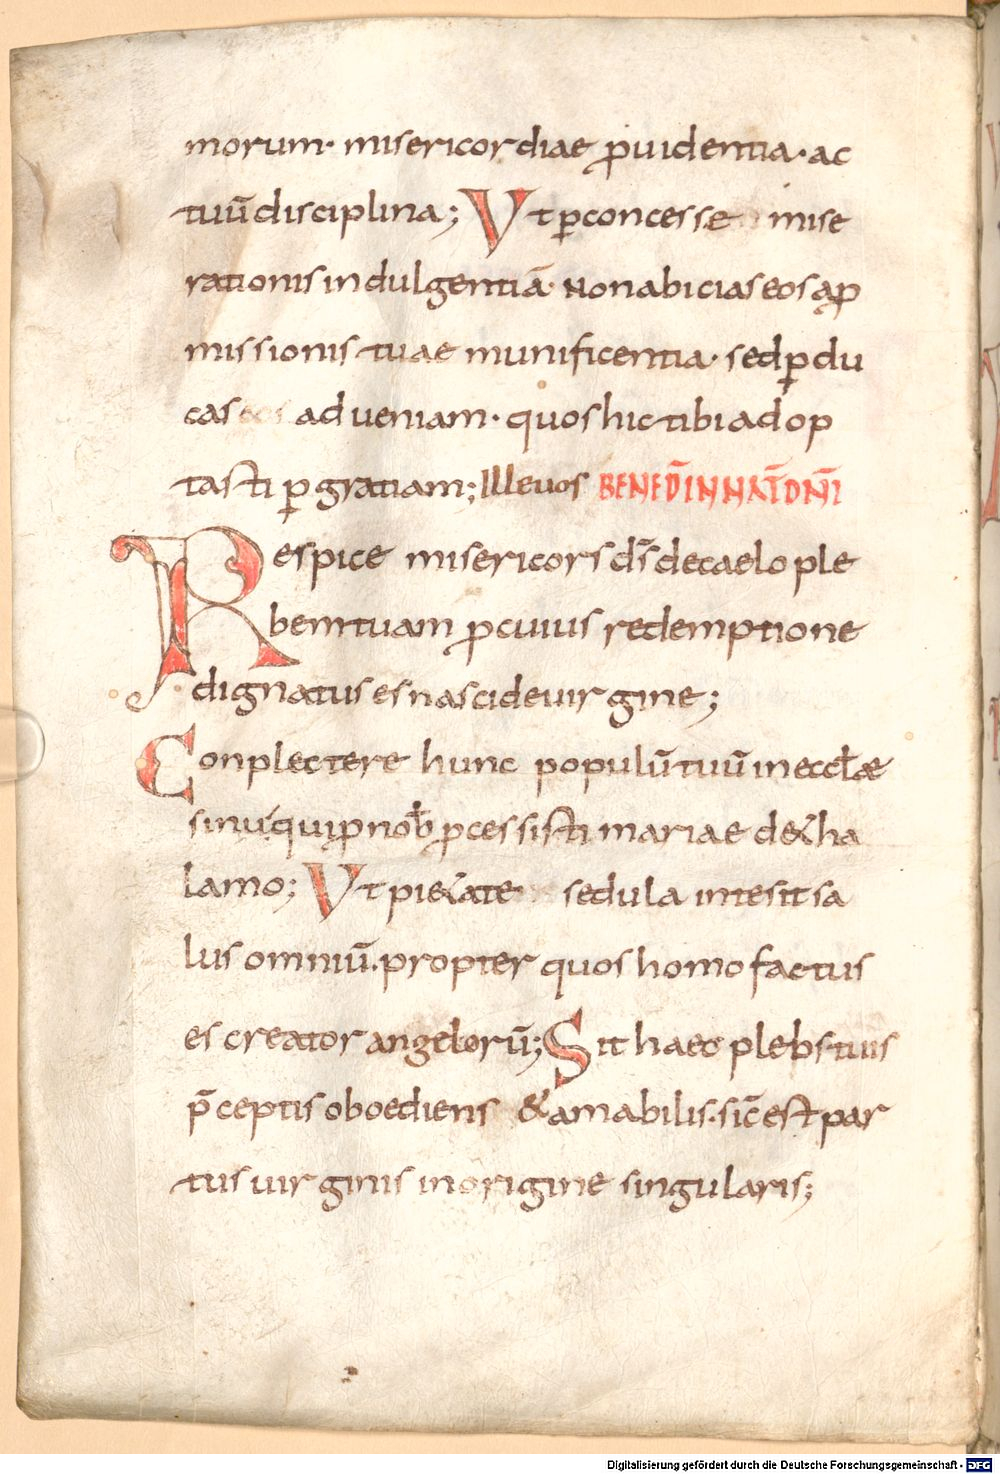 morum· misericordiae ꝓuidentia· ac
tuū disciplina; Ut ꝑ concesse mise
rationis indulgentiā· Non abicias eos a ꝓ
missionis tuae munificentia· sed ꝑdu
cas eos ad ueniam· quos hic tibi adop
tasti ꝑ gratiam; Ille uos BENED̄ IN NAT̄ DN̄I
Respice misericors d̄s de caelo ple
bem tuam ꝓ cuius redemptione
dignatus es nasci de uirgine;
Conplectere hunc populū tuū in eccłae
sinu· qui ꝓ nob̄ ꝓcessisti mariae de tha
lamo; Ut pi&ate sedula intesit sa
lus omniū. propter quos homo factus
es creator angelorū; Sit haec plebs tuis
p̄ceptis oboediens & amabilis. sic̄ est par
tus uirginis in origine singularis;
Digitalisierung gefördert durch die Deutsche Forschungsgemeinschaft - DFG